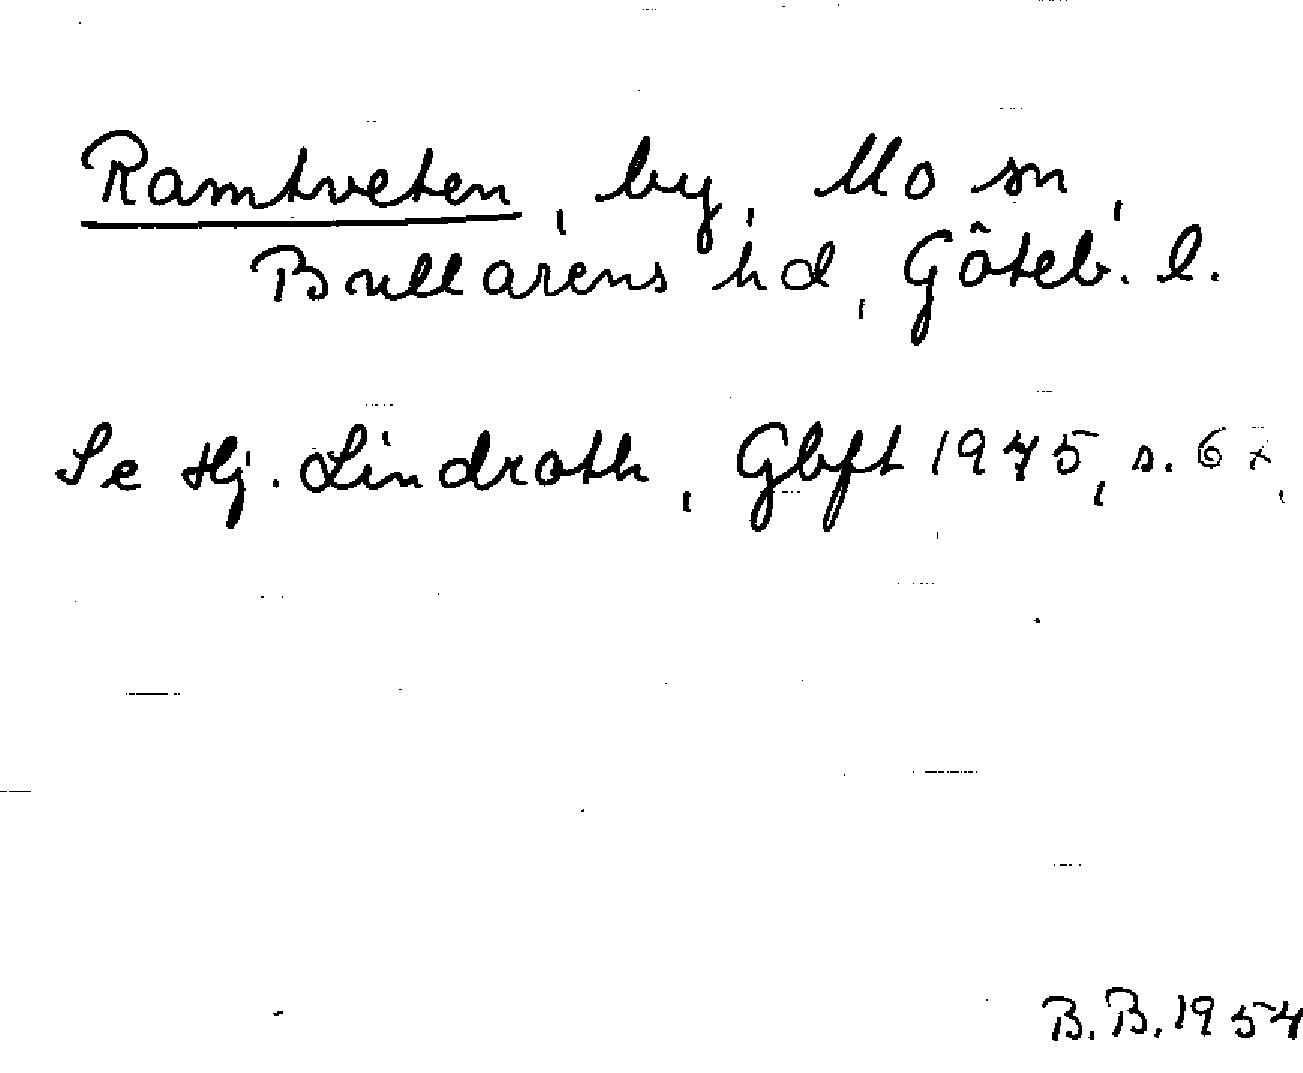 Ramtveten, by, Mo sn,
Bullarens hd, Göteb. l.
Se Hj. Lindroth, Gbft 1945, s. 67.
B.B. 1954